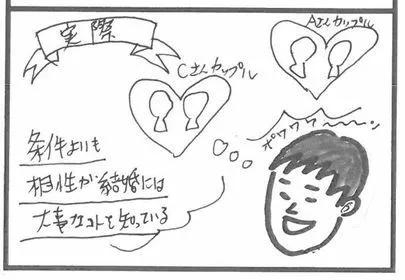 実際
Aさんカップル
Cさんカップル
ポワワワ〜〜ン
条件よりも
相性が結婚には
大事なコトを知っている